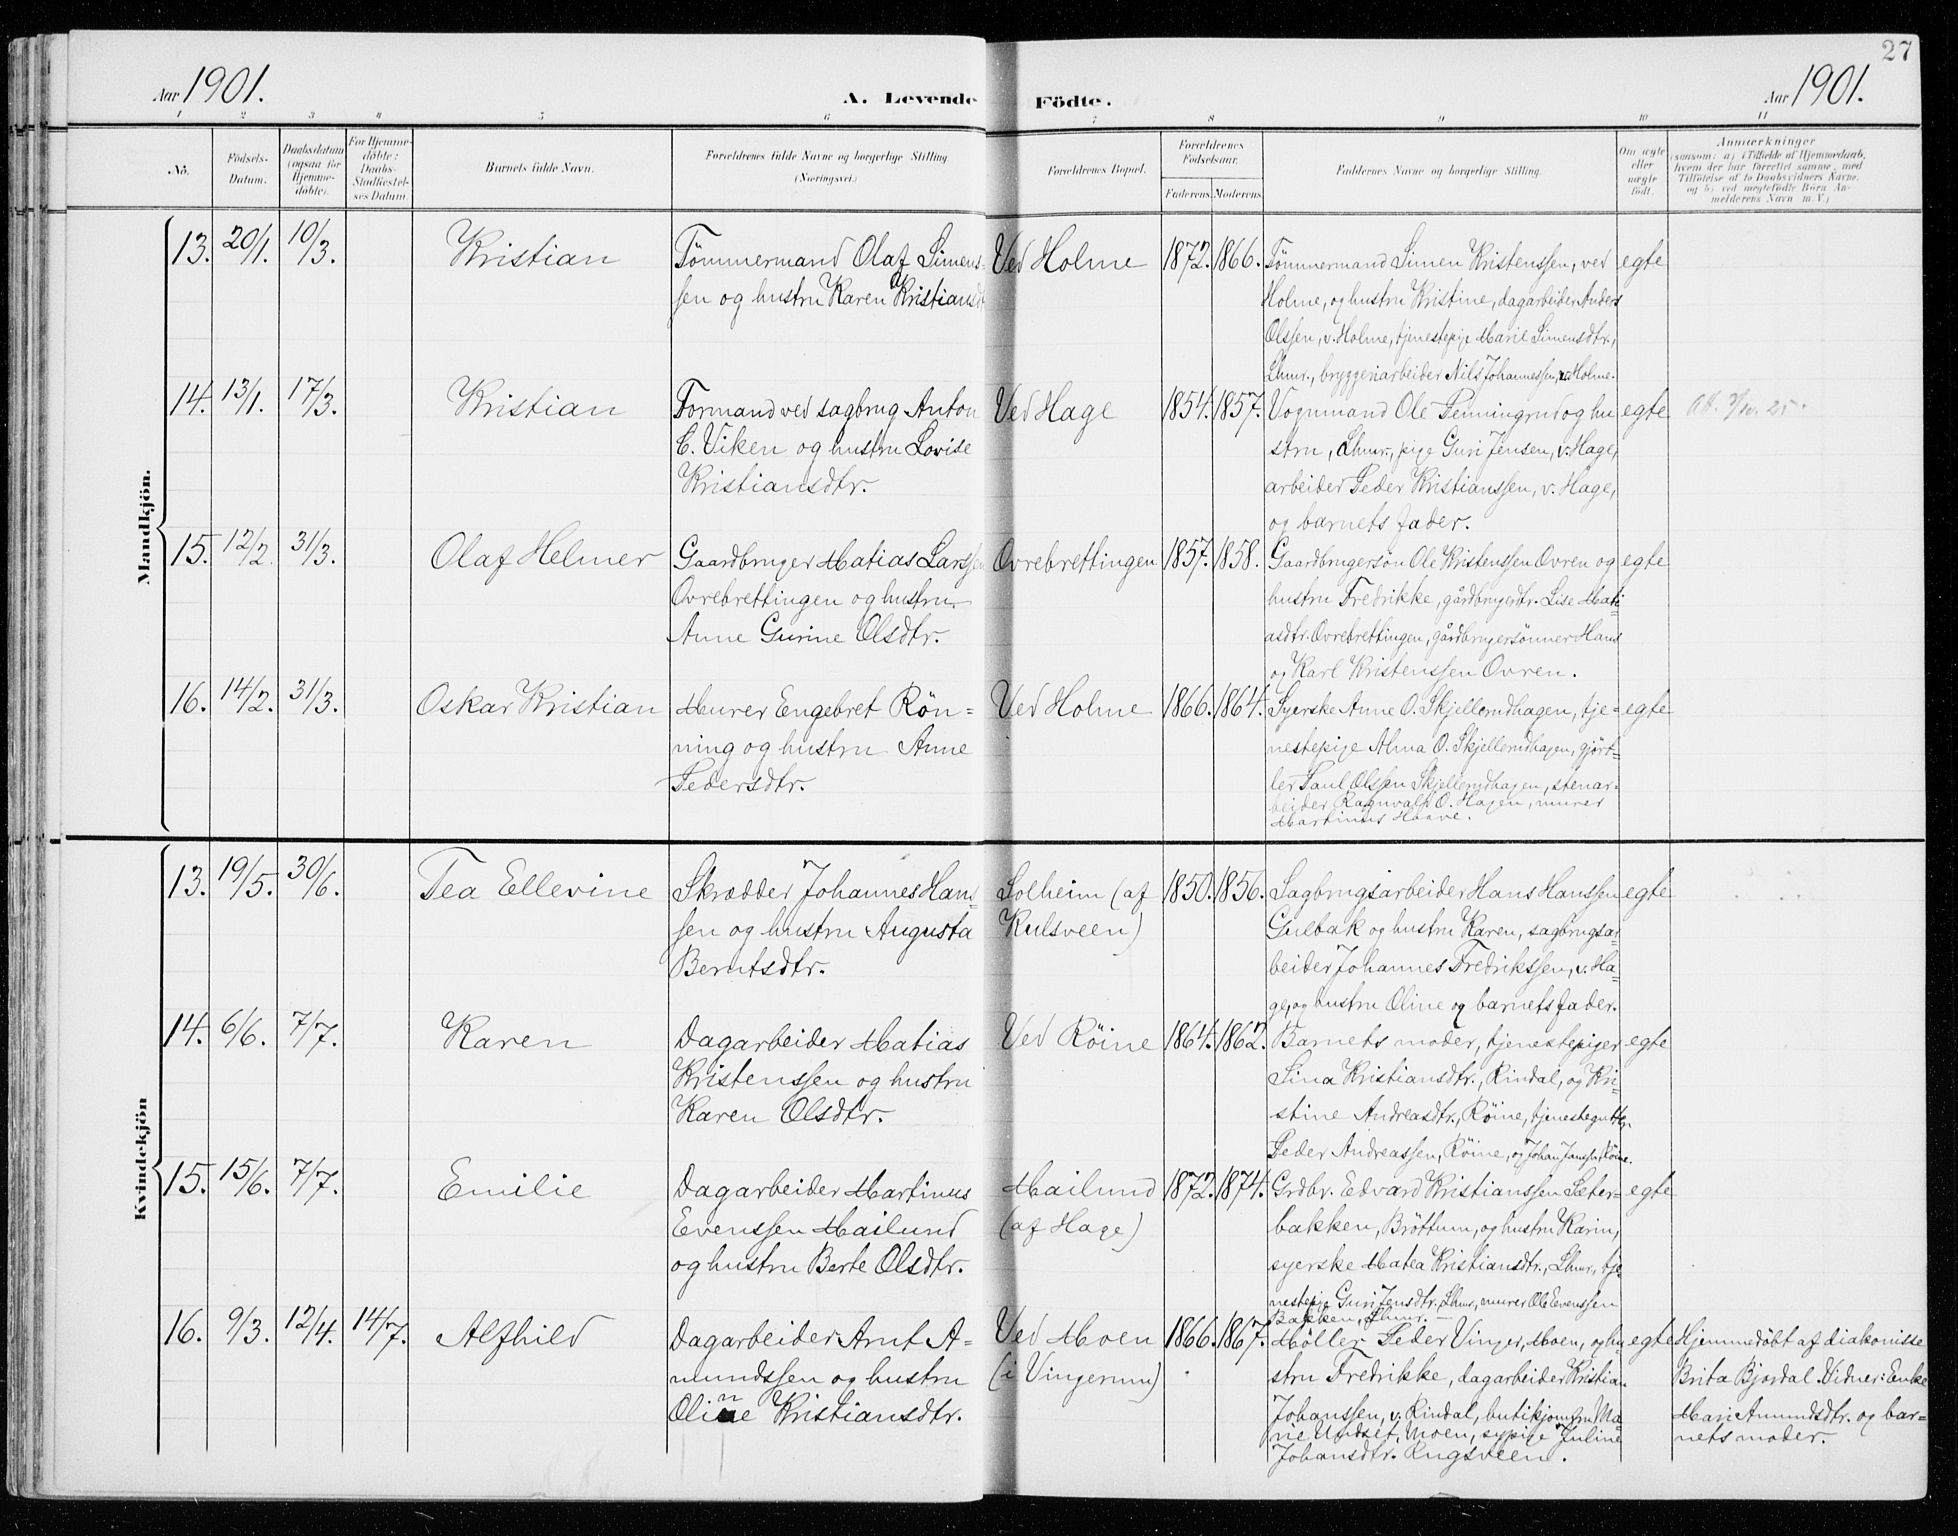 27
Aar 1901.
A. Levende Födte.
Aar 1901.
1 2 3 4 5 6 7 8 9 10 11
No.
Födsels-
Datum.
Daabsdatum
(ogsaa for
Hjemme-
döbte).
For Hjemme-
döbte:
Daabs-
Stadfæstel-
ses Datum.
Barnets fulde Navn.
Forældrenes fulde Navne og borgerlige Stilling
(Næringsvei.)
Forældrenes Bopæl.
Forældrenes
Födselsaar.
Faderens. Moderens.
Faddernes Navne og borgerlige Stilling.
Om ægte
eller
uægte
födt.
Anmærkninger
(saasom: a) i Tilfælde af Hjemmedaab,
hvem der har forrettet samme, med
Tilföielse af to Daabsvidners Navne,
og b) ved uægtefödte Börn An-
melderens Navn m. V.)
Mandkjön.
13. 20/1. 10/3.
Kristian
Tömmermand Olaf Simens-
sen og hustru Karen Kristiansdt
Ved Holme
1872. 1866.
Tömmermand Simen Kristenssen, ved
Holme, og hustru Kristine, dagarbeider Anders
Olssen, v. Holme, tjenestepige Marie Simensdtr.,
Lhmr., bryggeriarbeider Nils Johannessen, v. Holme.
egte
14. 13/1. 17/3.
Kristian
Formand ved sagbrug Anton
C. Viken og hustru Lovise
Kristiansdtr.
Ved Hage
1854. 1857.
Vognmand Ole Penningrud og hu
stru, Lhmr., pige Guri Jensen, v. Hage,
arbeider Peder Kristianssen, v. Hage,
og barnets fader.
egte
15. 12/2. 31/3.
Olaf Helmer
Gaardbruger Matias Larssen
Ovrebrettingen og hustru
Anne Gurine Olsdtr.
Ovrebrettingen
1857. 1858.
Gaardbrugersön Ole Kristenssen Ovren og
hustru Fredrikke, gårdbrugerdtr. Lise Mati-
asdtr. Ovrebrettingen, gårdbrugersönner Hans
og Karl Kristenssen Ovren.
egte
16. 14/2. 31/3.
Oskar Kristian
Murer Engebret Rön-
ning og hustru Anne
Pedersdtr.
Ved Holme
1866. 1864.
Syerske Anne O. Skjellerudhagen, tje-
nestepige Alma O. Skjellerudhagen, gjört-
ler Paul Olssen Skjellerudhagen, stenar-
beider Ragnvald O. Hagen, murer
Martinus Haave.
egte
Kvindekjön
13. 19/5. 30/6.
Tea Ellevine
Skrædder Johannes Hans-
sen og hustru Augusta
Berntsdtr.
Solheim (af
Kulsveen)
1850. 1856.
Sagbrugsarbeider Hans Hanssen
Gulbak og hustru Karen, sagbrugsar-
beider Johannes Fredrikssen, v. Ha-
ge, og hustru Oline og barnets fader.
egte
14. 6/6. 7/7.
Karen
Dagarbeider Matias
Kristenssen og hustru
Karen Olsdtr.
Ved Röine
1864. 1862.
Barnets moder, tjenestepiger
Sina Kristiansdtr., Rindal, og Kri-
stine Andreasdtr., Röine, tjenestegutter
Peder Andreassen, Röine, og Johan Janssen, Röine.
egte
15. 15/6. 7/7.
Emilie
Dagarbeider Martinus
Evenssen Mailund
og hustru Berte Olsdtr.
Mailund
(af Hage)
1872. 1874.
Grdbr. Edvard Kristianssen Sæter-
bakken, Bröttum, og hustru Karin,
syerske Matea Kristiansdtr., Lhmr., tje-
nestepige Guri Jensdtr., Lhmr., murer Ole Evenssen
Bakken, Lhmr.
egte
16. 9/3. 12/4. 14/7.
Alfhild
Dagarbeider Arnt A-
mundssen og hustru
Oline Kristiansdtr.
Ved Moen
(i Vingerum)
1866. 1867.
Möller Peder Vinger, Moen, og hu
stru Fredrikke, dagarbeider Kristian
Johanssen, v. Rindal, butikjomfru Ma-
rie Undset, Moen, sypige Juline
Johansdtr. Rugsveen.
egte
Hjemmedöbt af diakonisse
Brita Bjordal. Vidner: Enke
Mari Amundsdtr. og bar-
nets moder.